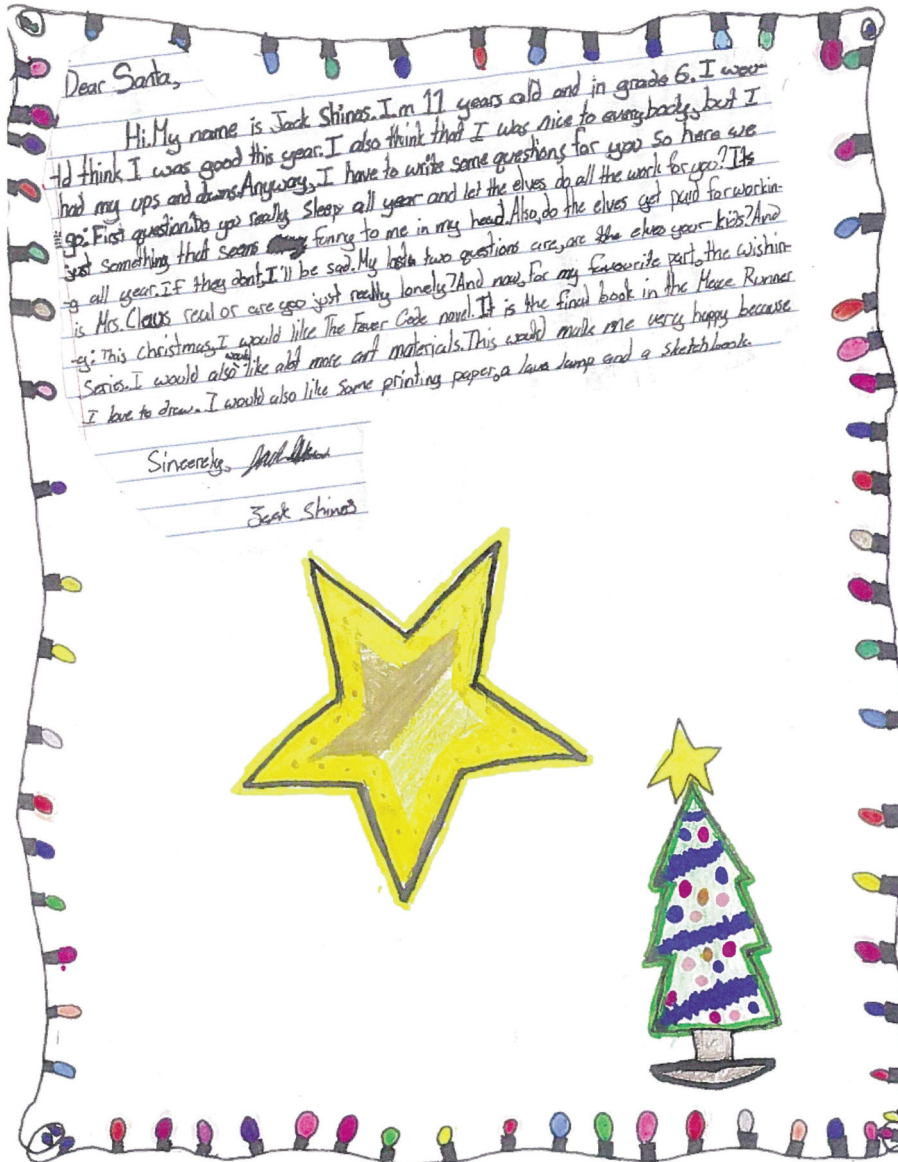 Dear Santa,
Hi. My name is Jack Shinas. I.m 11 years old and in grade 6. I wou-
ld think I was good this year. I also think that I was nice to everybody, but I
had my ups and downs. Anyway, I have to write some questions for you so here we
go: First question: Do you really sleep all year and let the elves do all the work for you? Its
just something that seems funny to me in my head. Also, do the elves get paid for workin-
g all year. If they dont, I'll be sad. My last two questions are, are the elves your kids? And
is Mrs. Claus real or are you just really lonely? And now, for my favourite part, the wishin-
-g: This christmas, I would like The Fever Code novel. It is the final book in the Maze Runner
Series. I would also like alot more art materials. This would make me very happy because
I love to draw. I would also like some printing paper, a lava lamp and a sketchbook.
Sincerely,
Jack Shinas